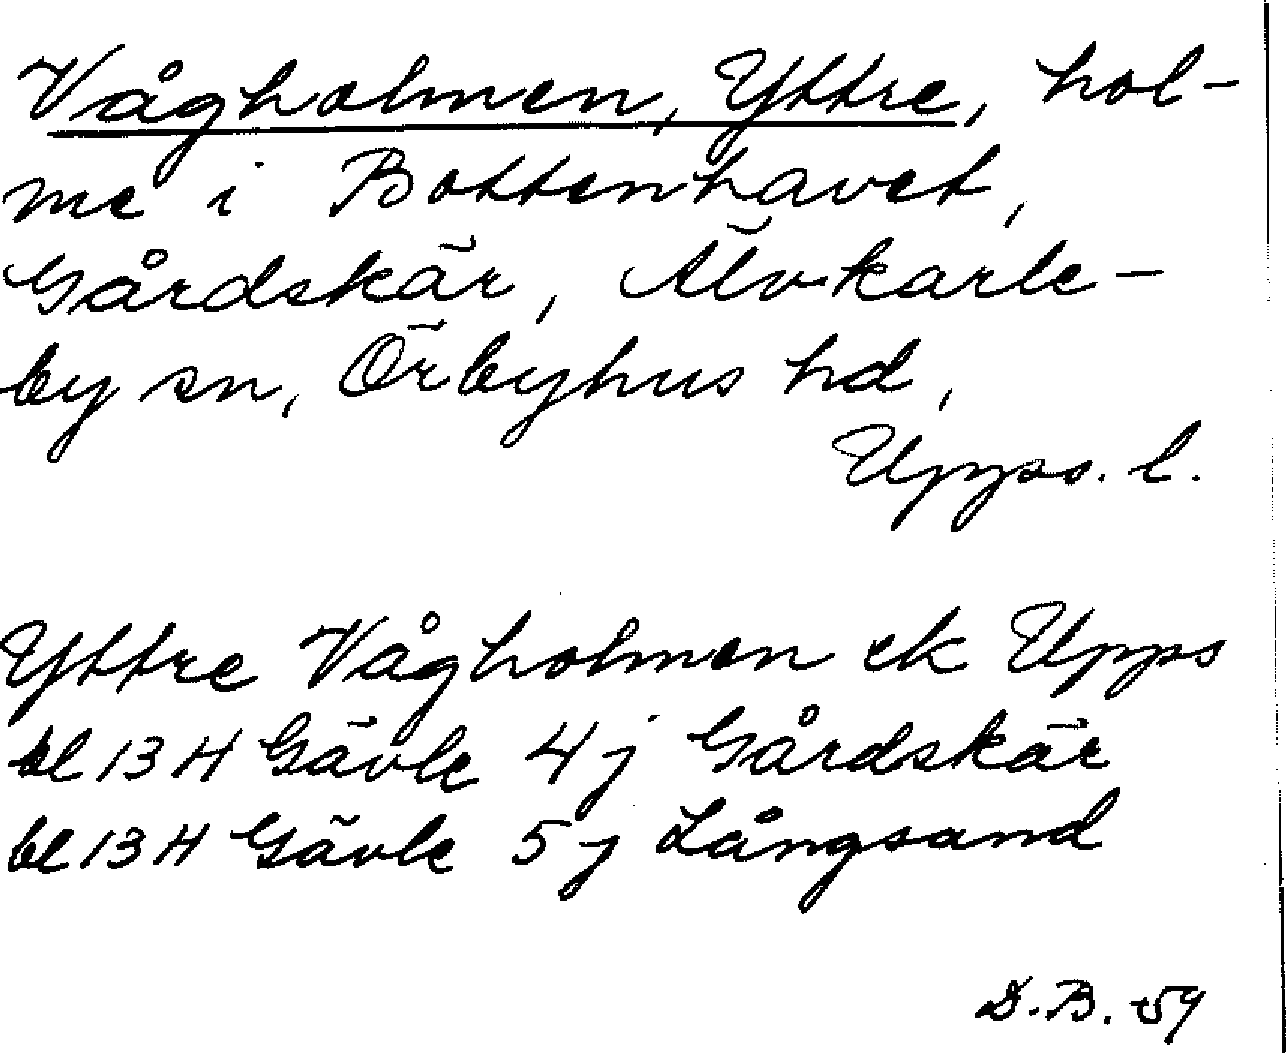 Vågholmen, Yttre, hol-
me i Bottenhavet,
Gårdskär, Älvkarle-
by sn, Örbyhus hd,
Upps. l.
Yttre Vågholmen ek Upps
bl 13 H Gävle 4 j Gårdskär
bl 13 H Gävle 5 j Långsand
D.B. -59